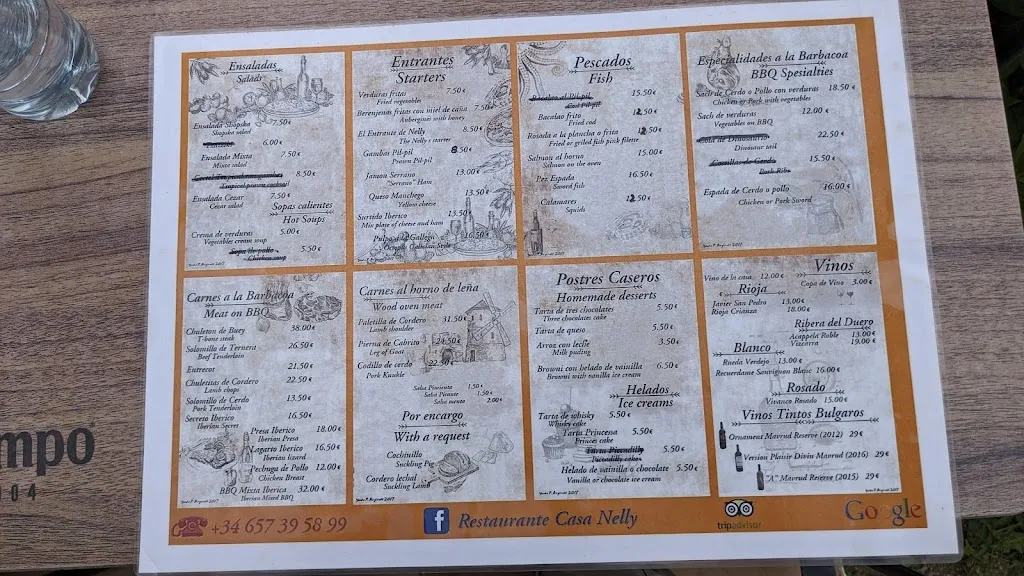 Ensaladas
Salads
Ensalada Shopska 7.50 €
Shopska salad
6.00 €
Ensalada Mixta 7.50 €
Mixta salad
8.50 €
Tropical prawn cocktail
Ensalada Cezar 7.50 €
Cezar salad
Sopas calientes
Hot Soups
Crema de verduras 5.00 €
Vegetables cream soup
Sopa de pollo 5.50 €
Chicken soup
Entrantes
Starters
Verduras fritas 7.50 €
Fried vegetables
Berenjenas fritas con miel de caña 7.50
Aubergines with honey
El Entrante de Nelly 8.50 €
The Nelly's starter
Gambas Pil-pil 8.50 €
Prawn Pil-pil
Jamon Serrano 13.00 €
"Serrano" Ham
Queso Manchego 13.50 €
Yellow cheese
Surtido Iberico 13.50 €
Mix plate of cheese and ham
Pulpo a la Gallega 16.50 €
Octopus Galician Style
Pescados
Fish
Bacalao al Pil-pil 15.50 €
Cod Pil-pil
Bacalao frito 12.50 €
Fried cod
Rosada a la plancha o frita 12.50 €
Fried or griled fish pink filette
Salmon al horno 15.00 €
Salmon on the oven
Pez Espada 16.50 €
Sword fish
Calamares 12.50 €
Squids
Especialidades a la Barbacoa
BBQ Spesialties
Sach de Cerdo o Pollo con verduras 18.50 €
Chicken or Pork with vegetables
Sach de verduras 12.00 €
Vegetables on BBQ
Cola de Dinosaurio 22.50 €
Dinosaur tail
Costillas de Cerdo 15.50 €
Pork Ribs
Espada de Cerdo o pollo 16.00 €
Chicken or Pork Sword
Carnes a la Barbacoa
Meat on BBQ
Chuleton de Buey 38.00 €
T-bone steak
Solomillo de Ternera 26.50 €
Beef Tenderloin
Entrecot 21.50 €
Chuletitas de Cordero 22.50 €
Lamb chops
Solomillo de Cerdo 13.50 €
Pork Tenderloin
Secreto Iberico 16.50 €
Iberian Secret
Presa Iberico 18.00 €
Iberian Presa
Lagarto Iberico 16.50 €
Iberian lizard
Pechuga de Pollo 12.00 €
Chicken Breast
BBQ Mixta Iberica 32.00 €
Iberian Mixed BBQ
Carnes al horno de leña
Wood oven meat
Paletilla de Cordero 31.50 €
Lamb shoulder
Pierna de Cabrito 24.50 €
Leg of Goat
Codillo de cerdo 22.50 €
Pork Knukle
Salsa Pimienta 1.50 €
Salsa Picante 1.50 €
Salsa menta 2.00 €
Por encargo
With a request
Cochinillo
Suckling Pig
Cordero lechal
Suckling Lamb
Postres Caseros
Homemade desserts
Tarta de tres chocolates 5.50 €
Three chocolates cake
Tarta de queso 5.50 €
Arroz con leche 3.50 €
Milk puding
Browni con helado de vainilla 6.50 €
Browni with vanilla ice cream
Helados
Ice creams
Tarta de whisky 5.50 €
Whisky cake
Tarta Princesa 5.50 €
Princes cake
Tarta Picadilly 5.50 €
Picadilly cake
Helado de vainilla o chocolate 5.50 €
Vanilla or chocolate ice cream
Vinos
Vino de la casa 12.00 € Copa de Vino 3.00 €
Rioja
Javier San Pedro 13.00 €
Rioja Crianza 18.00 €
Ribera del Duero
Acappela Roble 13.00 €
Vizcarra 19.00 €
Blanco
Rueda Verdejo 13.00 €
Recuerdame Sauvignon Blanc 16.00 €
Rosado
Vivanco Rosado 15.00 €
Vinos Tintos Bulgaros
Ornament Mavrud Reserve (2012) 29 €
Version Plaisir Divin Mavrud (2016) 29 €
"A" Mavrud Reserve (2015) 29 €
+34 657 39 58 99
f Restaurante Casa Nelly
tripadvisor
Google
mpo
04